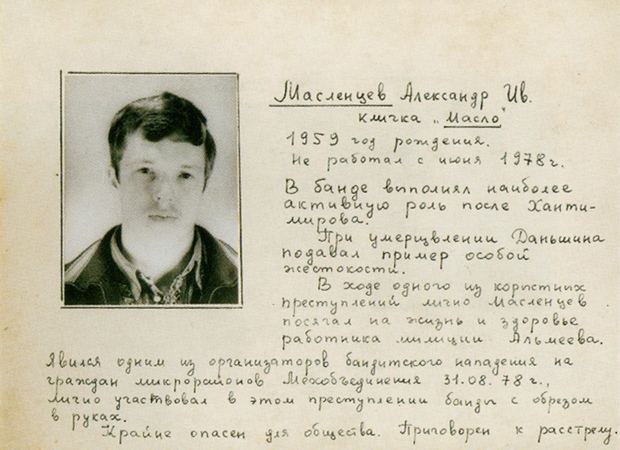 Масленцев Александр Ив.
кличка „Масло"
1959 год рождения.
Не работал с июня 1978 г.
В банде выполнял наиболее
активную роль после Ханти-
мирова.
При умерщвлении Даньшина
подавал пример особой
жестокости.
В ходе одного из корыстных
преступлений лично Масленцев
посягал на жизнь и здоровье
работника милиции Альмеева.
Явился одним из организаторов бандитского нападения на
граждан микрорайонов Мехобъединения 31.08.78 г.,
лично участвовал в этом преступлении банды с обрезом
в руках.
Крайне опасен для общества. Приговорен к расстрелу.